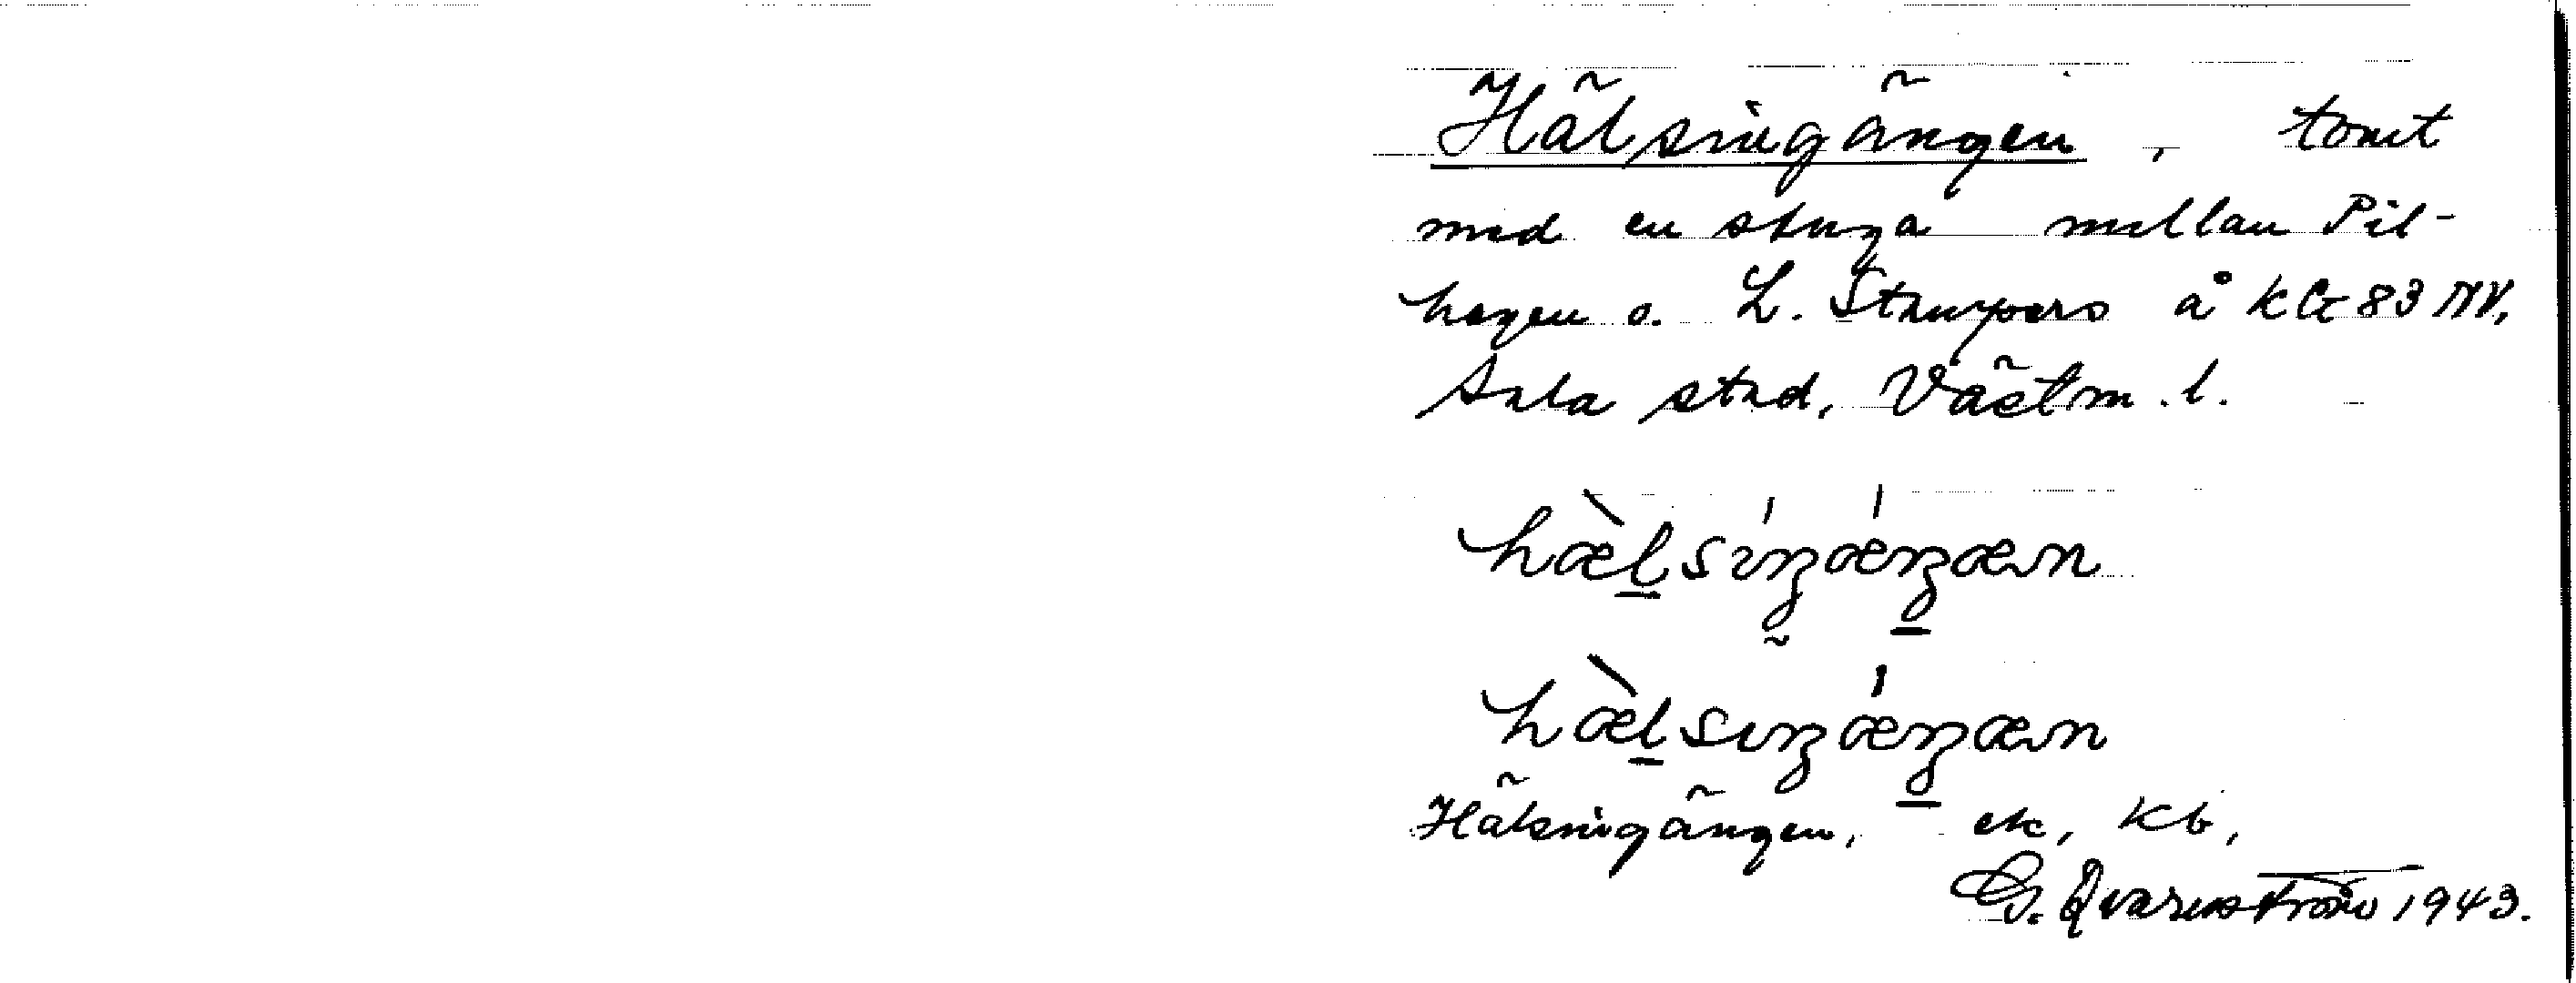 Hälsingängen, tomt
med en stuga mellan Pil-
hagen o. L. Stampers å kbl 83 NV,
Sala stad, Västm. l.
hæ̀lsiŋæŋæn
hæ̀lsiŋæŋæn
Hälsingängen, ek, Kb,
G. Qvarnström 1943.